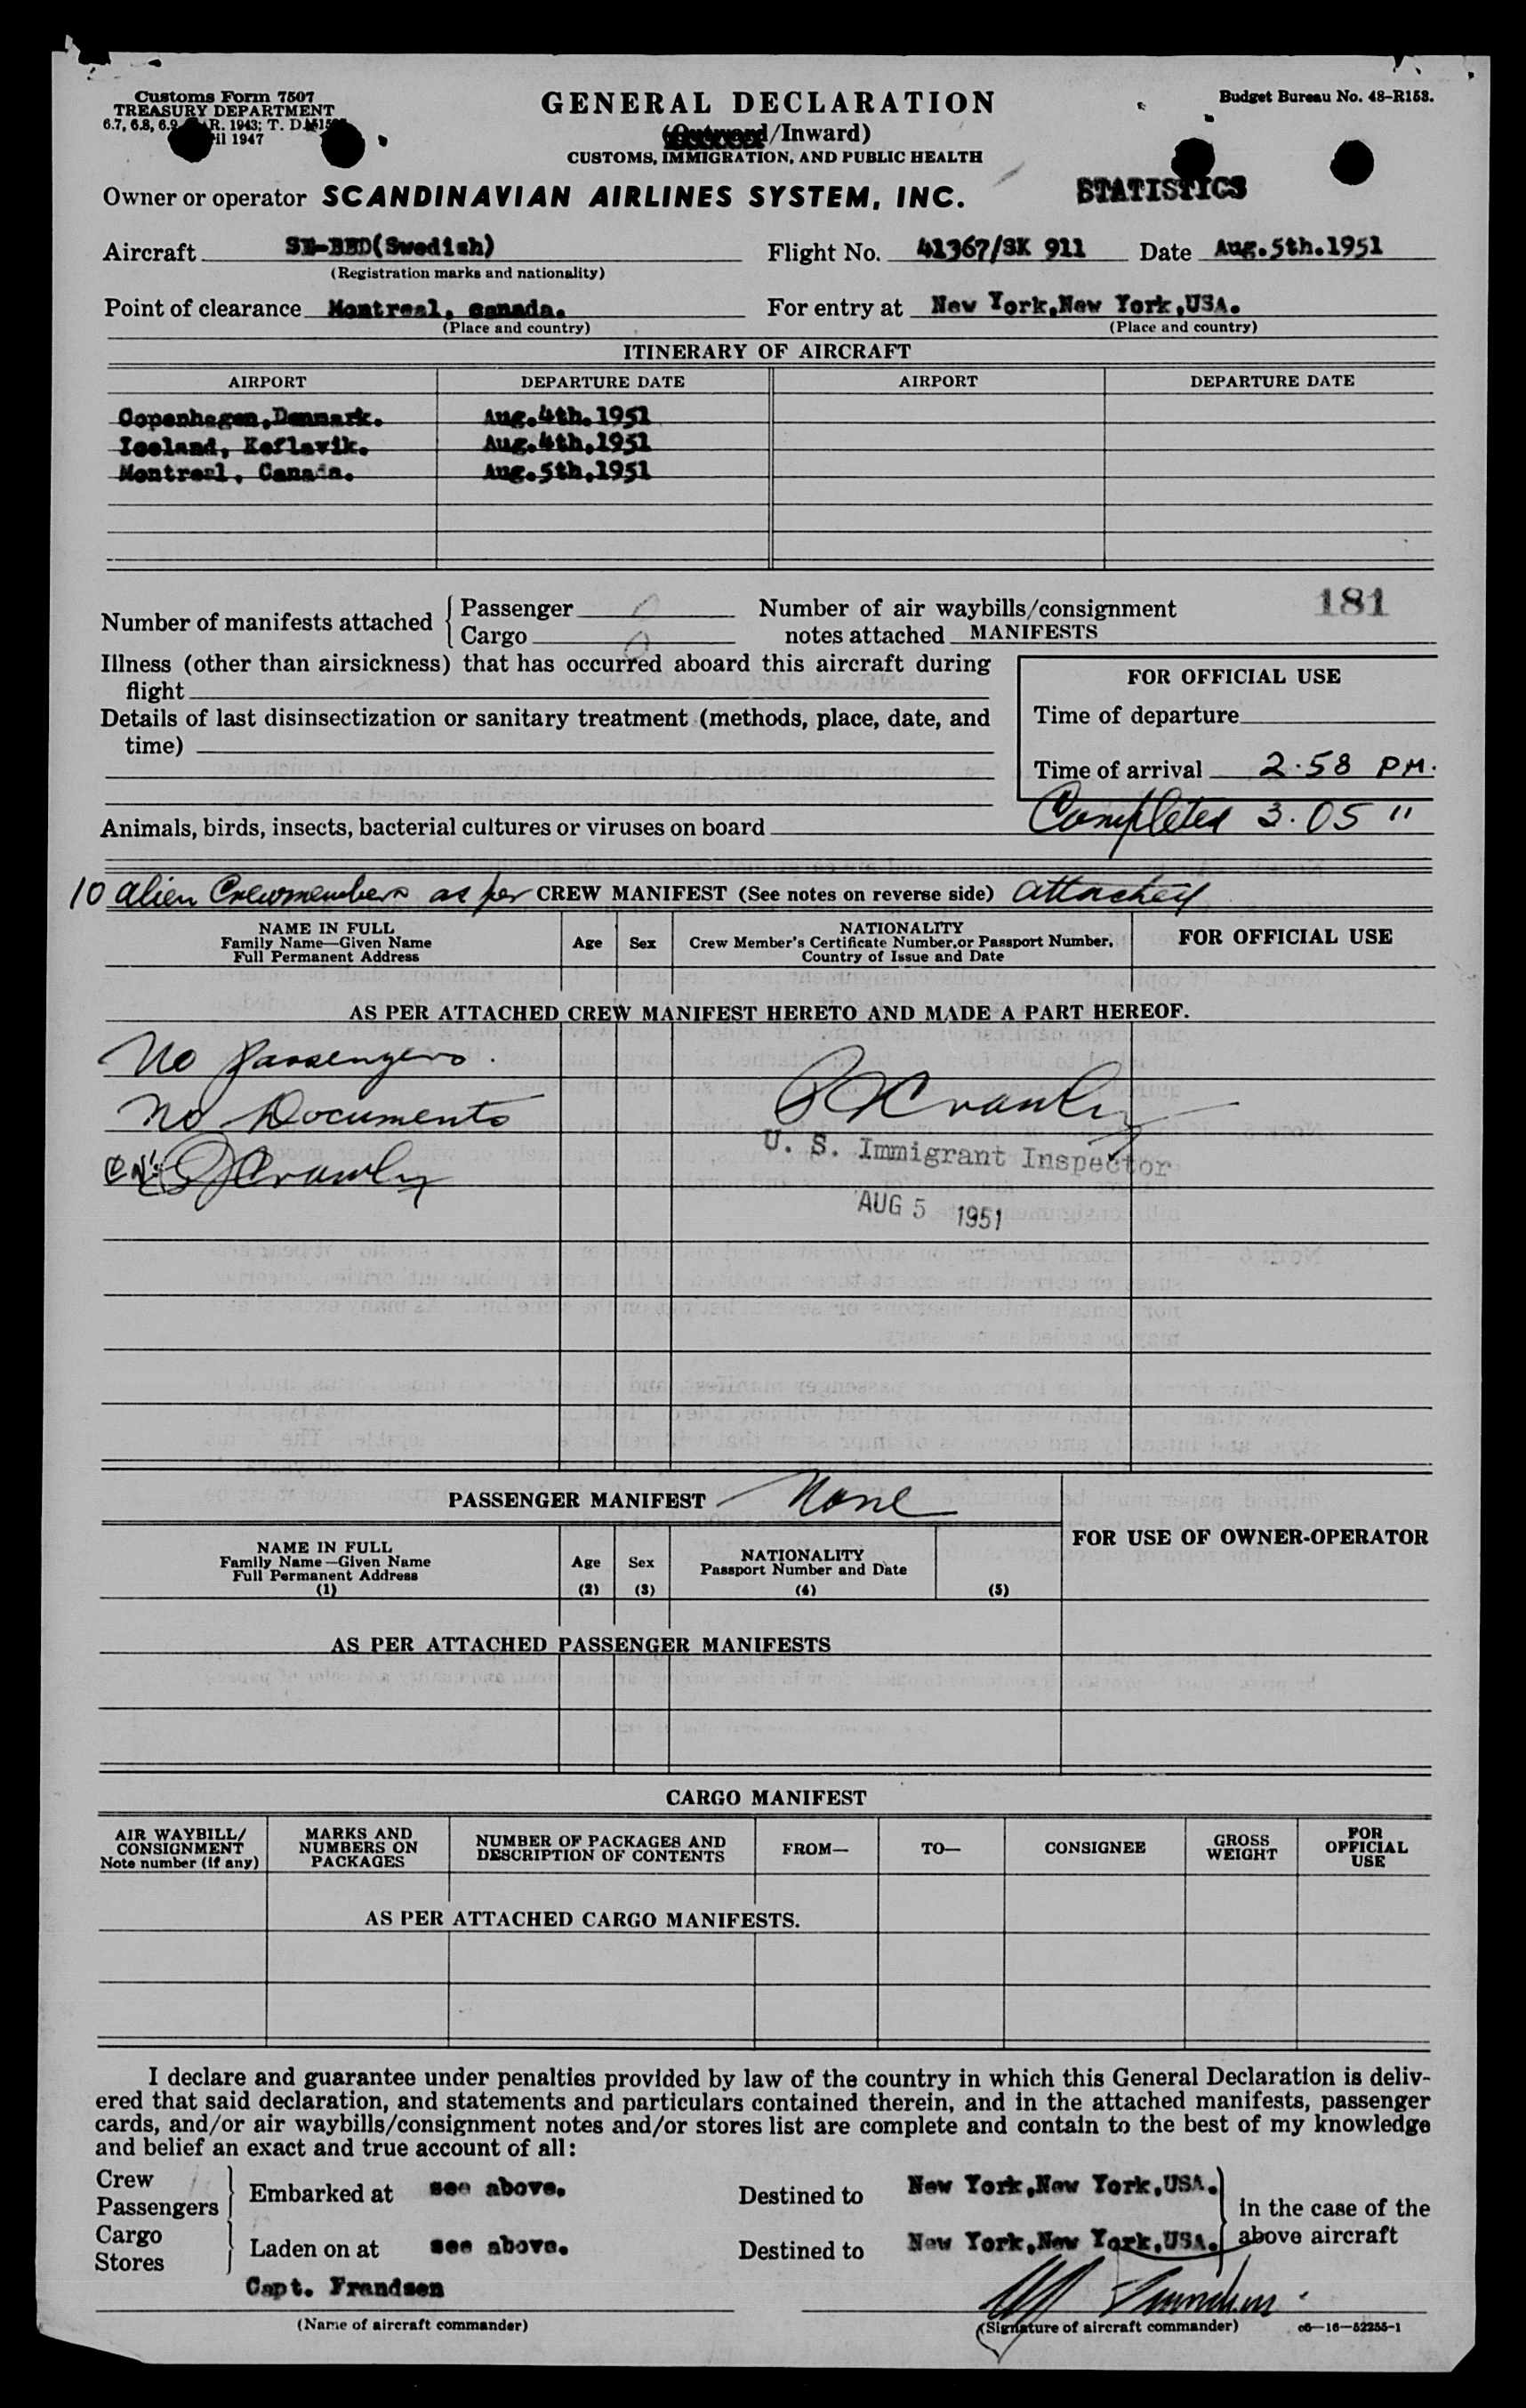 Customs Form 7507
TREASURY DEPARTMENT
6.7, 6.8, 6.9 R. 1943; T. D.
il 1947
GENERAL DECLARATION
/Inward)
CUSTOMS, IMMIGRATION, AND PUBLIC HEALTH
Budget Bureau No. 48-R153.
STATISTICS
Owner or operator SCANDINAVIAN AIRLINES SYSTEM, INC.
Aircraft SE-BBD(Swedish) Flight No. 41367/SK 911 Date Aug.5th.1951
(Registration marks and nationality)
Point of clearance Montreal, Canada. For entry at New York,New York,USA.
(Place and country) (Place and country)
ITINERARY OF AIRCRAFT
AIRPORT DEPARTURE DATE AIRPORT DEPARTURE DATE
Copenhagen,Denmark. Aug.4th.1951
Iceland, Keflavik. Aug.4th,1951
Montreal, Canada. Aug.5th,1951
181
Number of manifests attached Passenger 0 Number of air waybills/consignment
Cargo 0 notes attached MANIFESTS
Illness (other than airsickness) that has occurred aboard this aircraft during
flight
Details of last disinsectization or sanitary treatment (methods, place, date, and
time)
FOR OFFICIAL USE
Time of departure
Time of arrival 2.58 PM.
Completed 3.05 "
Animals, birds, insects, bacterial cultures or viruses on board
10 alien Crewmembers as per CREW MANIFEST (See notes on reverse side) attached
NAME IN FULL
Family Name—Given Name
Full Permanent Address
Age Sex
NATIONALITY
Crew Member's Certificate Number,or Passport Number,
Country of Issue and Date
FOR OFFICIAL USE
AS PER ATTACHED CREW MANIFEST HERETO AND MADE A PART HEREOF.
No passengers.
No Documents
U. S. Immigrant Inspector
AUG 5 1951
PASSENGER MANIFEST - None
FOR USE OF OWNER-OPERATOR
NAME IN FULL
Family Name—Given Name
Full Permanent Address
(1)
Age
(2)
Sex
(3)
NATIONALITY
Passport Number and Date
(4)
(5)
AS PER ATTACHED PASSENGER MANIFESTS
CARGO MANIFEST
AIR WAYBILL/
CONSIGNMENT
Note number (if any)
MARKS AND
NUMBERS ON
PACKAGES
NUMBER OF PACKAGES AND
DESCRIPTION OF CONTENTS
FROM—
TO—
CONSIGNEE
GROSS
WEIGHT
FOR
OFFICIAL
USE
AS PER ATTACHED CARGO MANIFESTS.
I declare and guarantee under penalties provided by law of the country in which this General Declaration is deliv-
ered that said declaration, and statements and particulars contained therein, and in the attached manifests, passenger
cards, and/or air waybills/consignment notes and/or stores list are complete and contain to the best of my knowledge
and belief an exact and true account of all:
Crew
Passengers Embarked at see above. Destined to New York,New York,USA.
in the case of the
Cargo
Stores Laden on at see above. Destined to New York,New York,USA. above aircraft
Capt. Frandsen
(Name of aircraft commander) (Signature of aircraft commander) c6—16—52255-1